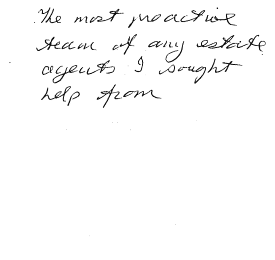 The most proactive
team of any estate
agents I sought
help from